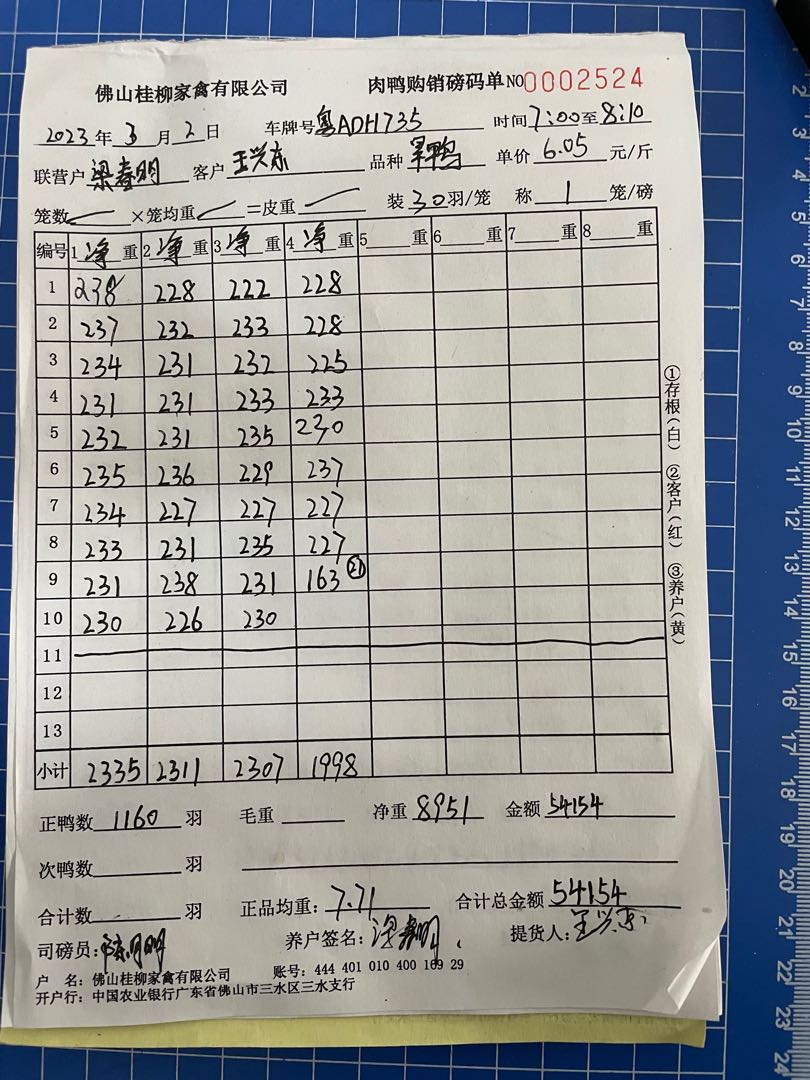 佛山桂柳家禽有限公司 肉鸭购销磅码单 NO0002524
2023年3月2日 车牌号粤ADH735 时间7:00至8:10
联营户梁春明 客户王兴东 品种 单价6.05元/斤
笼数 ×笼均重 =皮重 装30羽/笼 称1笼/磅
编号 1净重 2净重 3净重 4净重 5重 6重 7重 8重
1 238 228 222 228
2 237 232 233 228
3 234 231 232 225
4 231 231 233 233
5 232 231 235 230
6 235 236 229 237
7 234 227 227 227
8 233 231 235 227
9 231 238 231 163 21
10 230 226 230
11
12
13
小计 2335 2311 2307 1998
正鸭数1160羽 毛重 净重8951 金额54154
次鸭数 羽
合计数 羽 正品均重:7.71 合计总金额54154
司磅员: 养户签名:梁春明 提货人:王兴东
户 名:佛山桂柳家禽有限公司 账号:444 401 010 400 169 29
开户行:中国农业银行广东省佛山市三水区三水支行
①存根(白) ②客户(红) ③养户(黄)
1
2
3
4
5
6
7
8
9
10
11
12
13
14
15
16
17
18
19
20
21
22
23
24